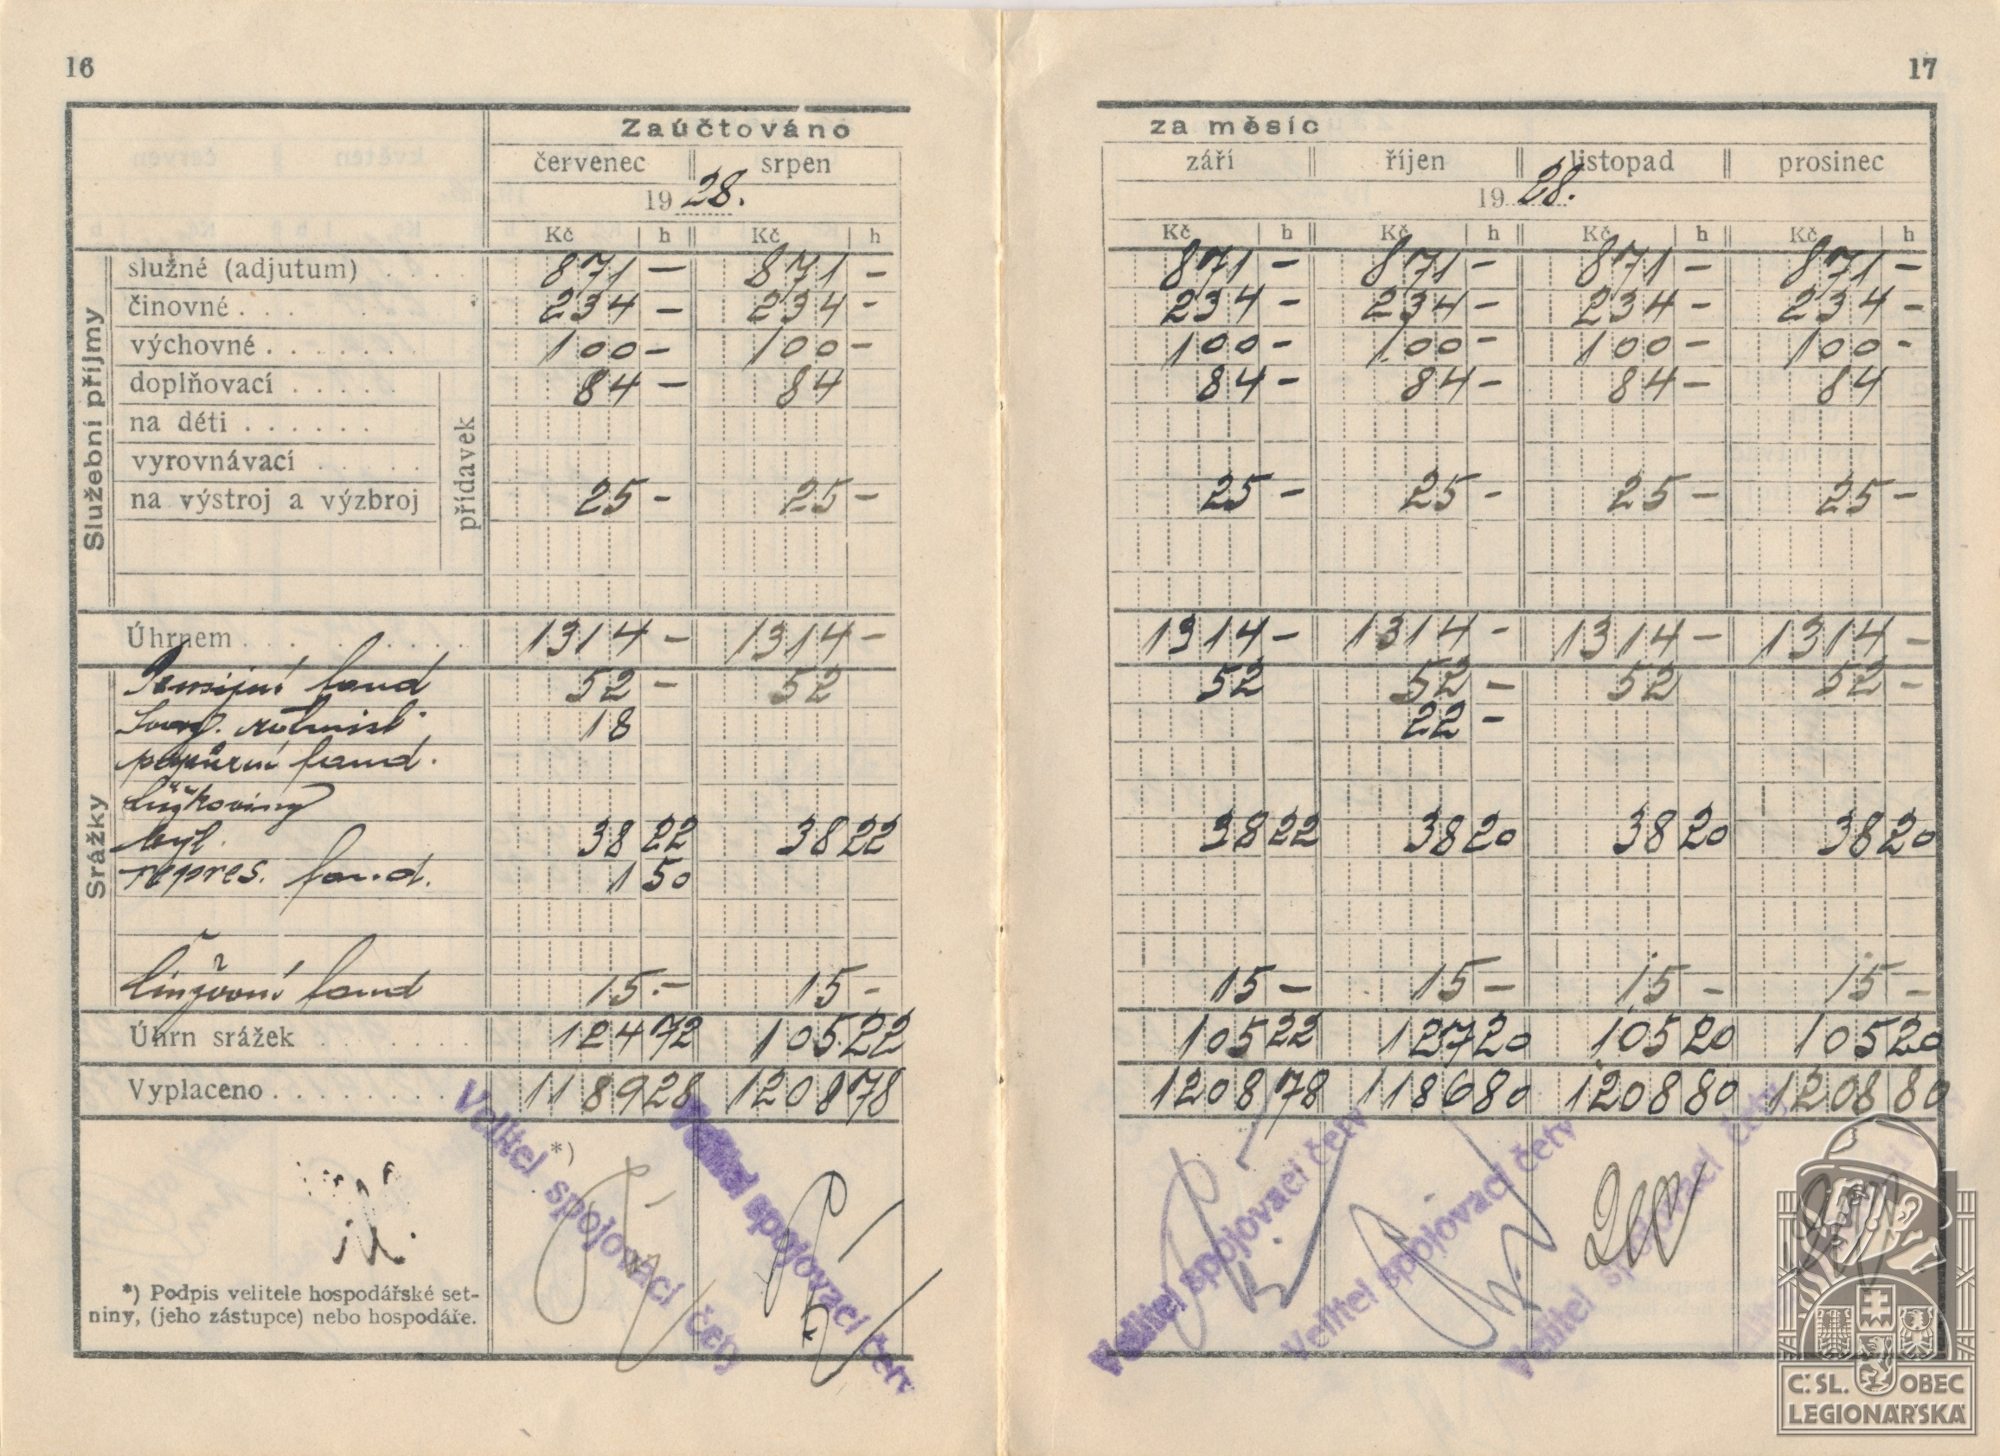 16
Zaúčtováno
červenec srpen
19 28.
Kč h Kč h
Služební příjmy
služné (adjutum) . . . . 871 – 871 –
činovné . . . 234 – 234 –
výchovné . . . . . . . 100 – 100 –
doplňovací . . . . . 84 – 84
na děti . . . . . .
vyrovnávací . . . . .
na výstroj a výzbroj 25 – 25 –
přídavek
Úhrnem . . . . . . . . . . 1314 – 1314 –
Srážky
Pensijní fond 52 – 52
rotmist. 18
fond.
byt. 38 22 38 22
repres. fond. 1 50
fond 15.– 15 –
Úhrn srážek . . . . . . . 124 72 105 22
Vyplaceno . . . . . . . . . 1189 28 1208 78
*)
Velitel spojovací čety
Velitel spojovací čety
*) Podpis velitele hospodářské set-
niny, (jeho zástupce) nebo hospodáře.
17
za měsíc
září říjen listopad prosinec
19 28.
Kč h Kč h Kč h Kč h
871 – 871 – 871 – 871 –
234 – 234 – 234 – 234 –
100 – 100 – 100 – 100 –
84 – 84 – 84 – 84
25 – 25 – 25 – 25 –
1314 – 1314 – 1314 – 1314 –
52 52 – 52 52 –
22 –
38 22 38 20 38 20 38 20
15 – 15 – 15 – 15 –
105 22 127 20 105 20 105 20
1208 78 1186 80 1208 80 1208 80
Velitel spojovací čety
Velitel spojovací čety
Velitel spojovací čety
Č. SL. OBEC
LEGIONÁŘSKÁ